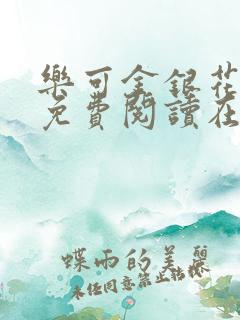 樂可金銀花
免費閱讀在
蝶雨的美麗
未任同意禁止轉載